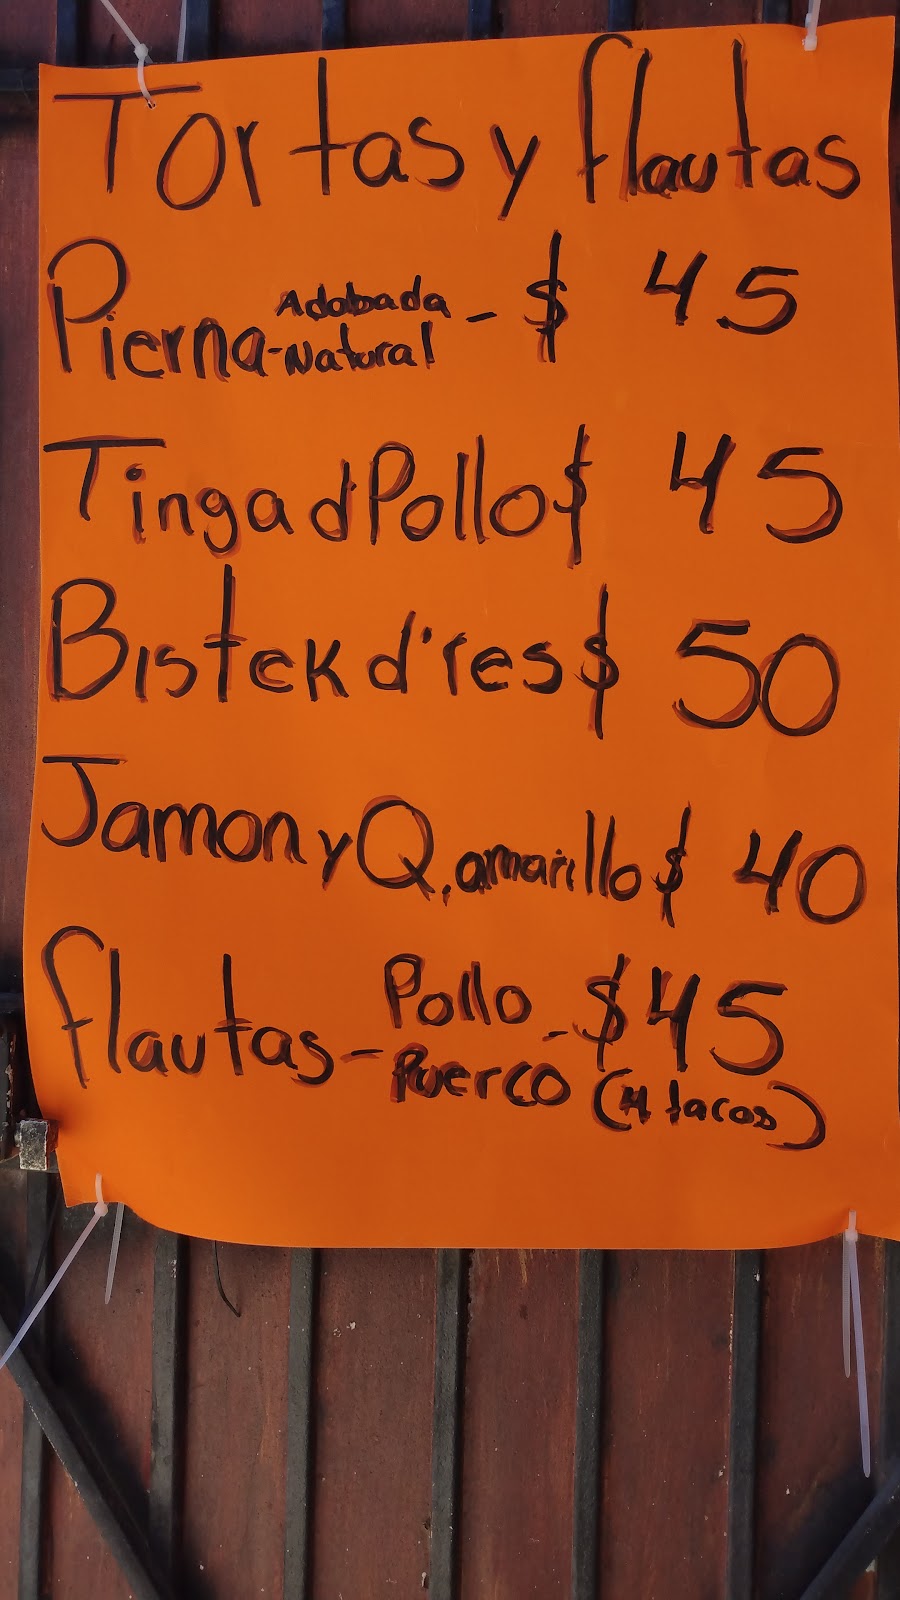 Tortas y flautas
Adobada
Pierna-Natural - $ 45
Tinga d Pollo $ 45
Bistek d'res $ 50
Jamon y Q. amarillo $ 40
Pollo
flautas - Puerco - $45
(4 tacos)